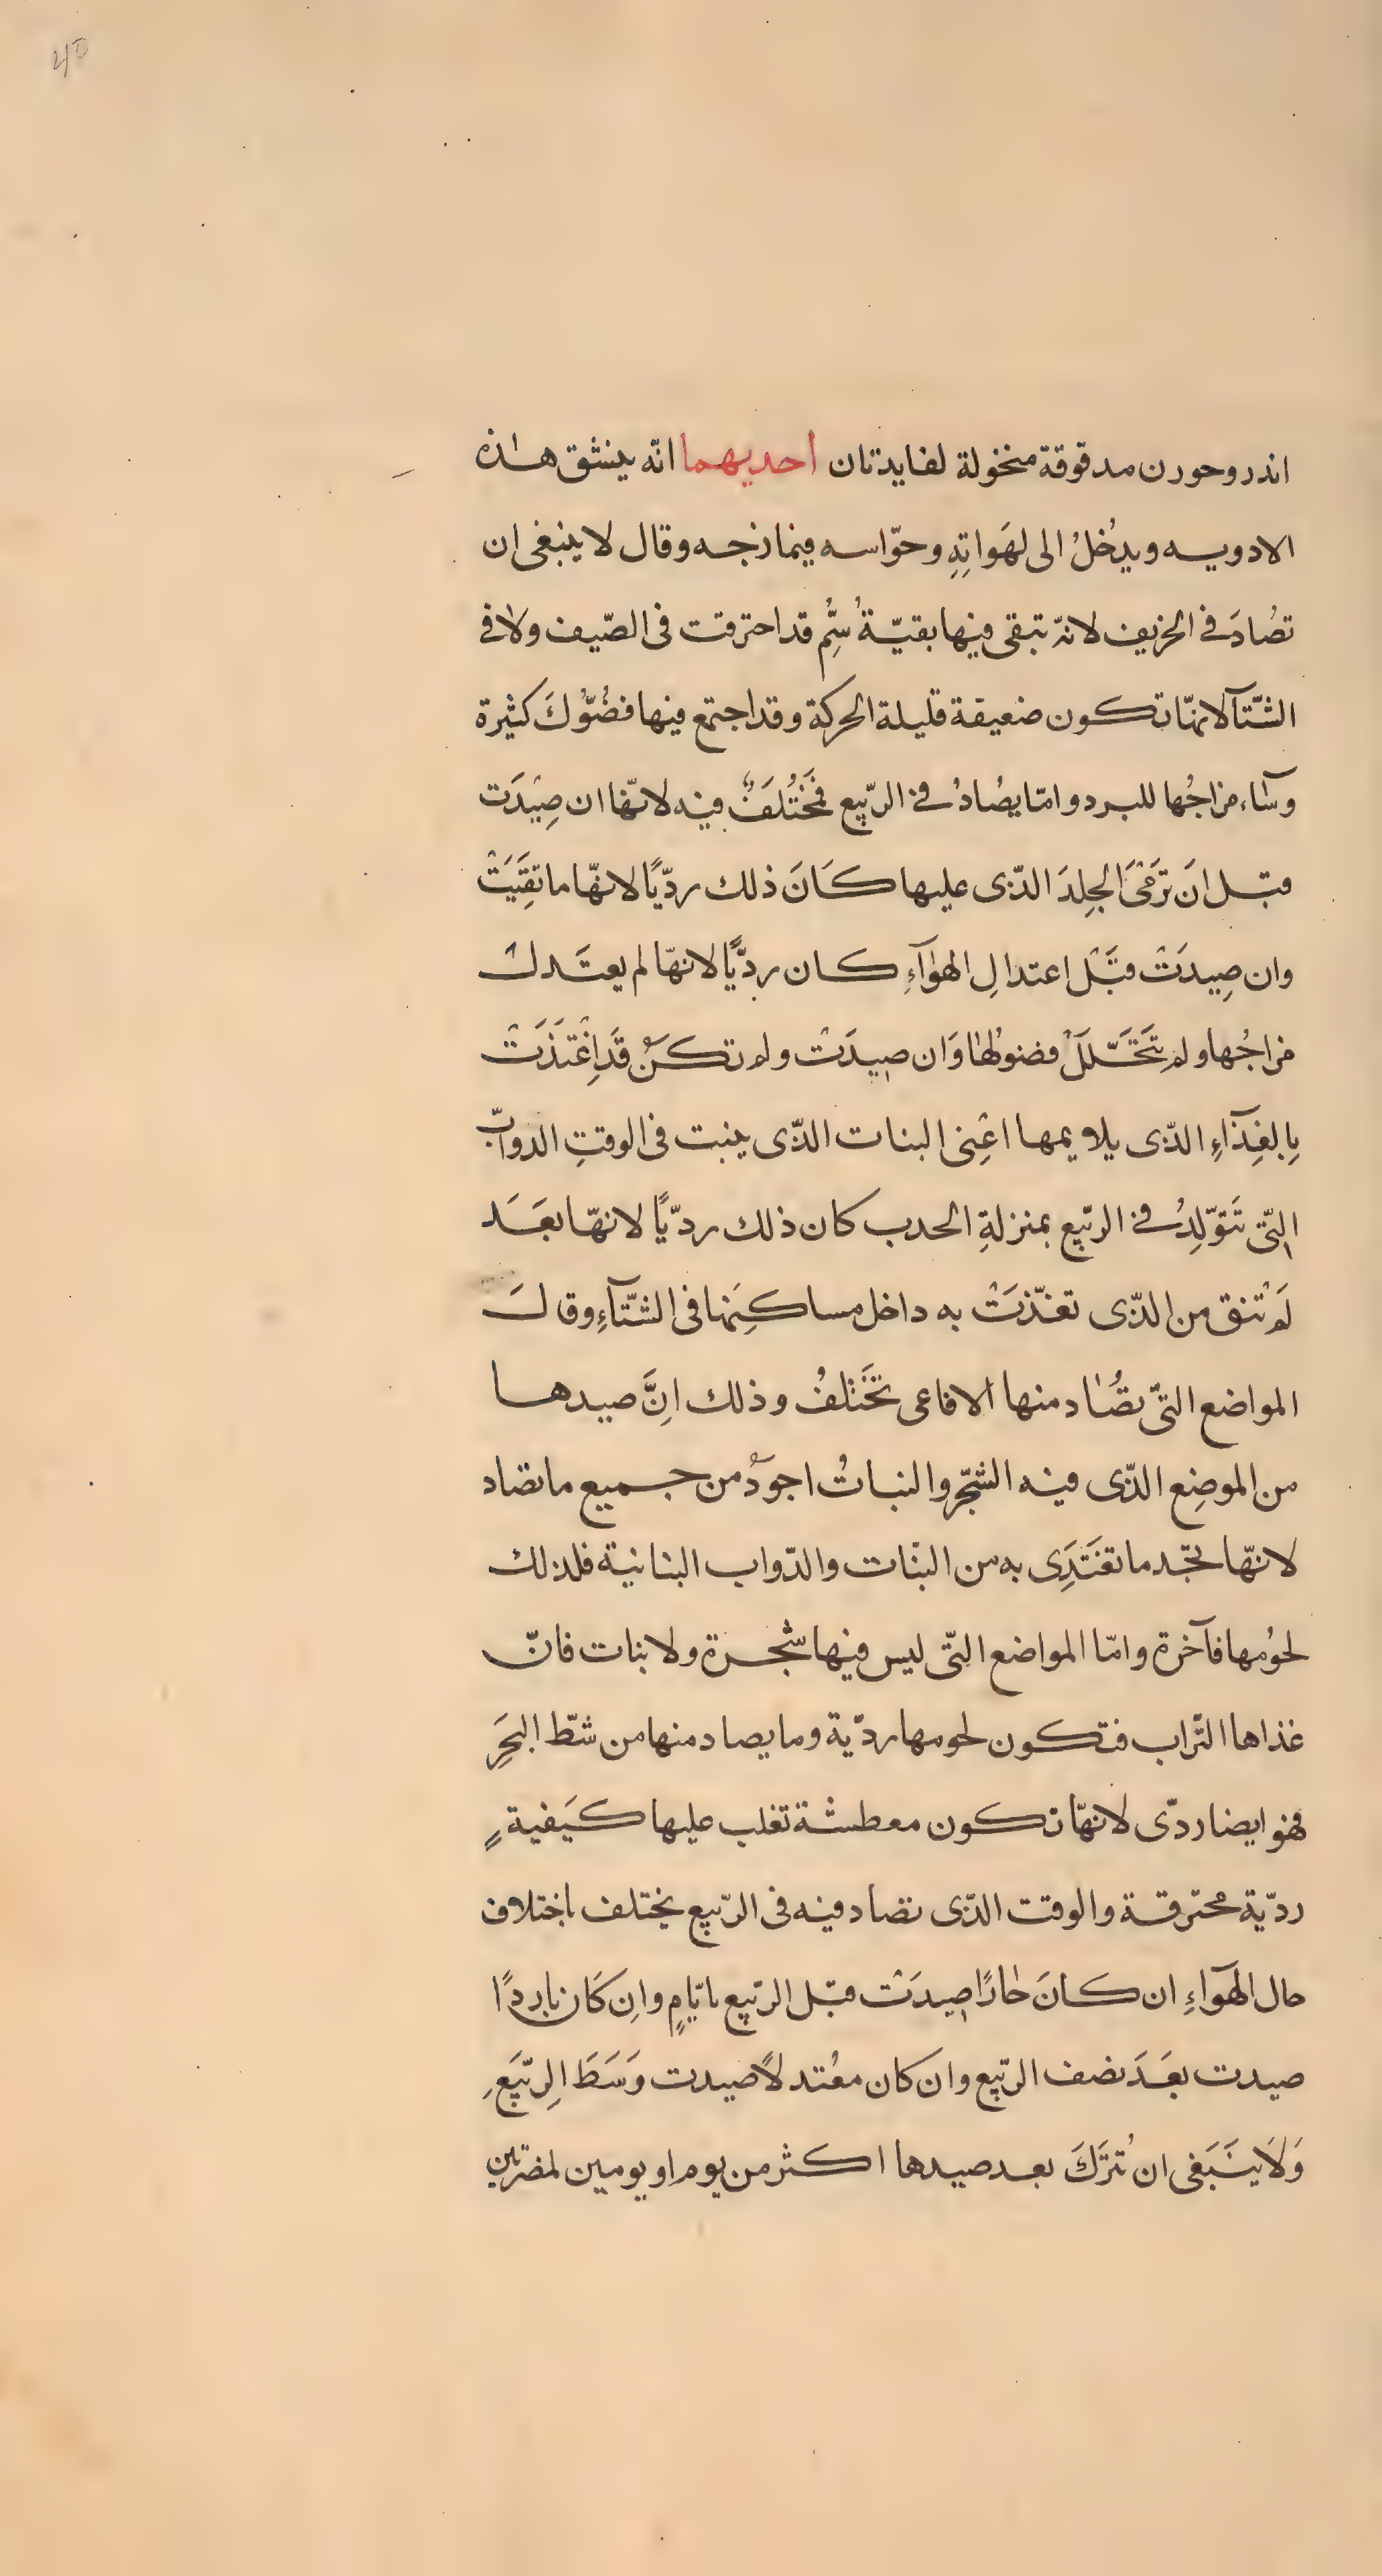 اندروحورن مدقوقة منخولة لفايدتان احديهما انّه ينشق هذه
الادويه ويدُخلُ الى لهَواتِهِ وحوّاسه فيمازجه وقال لا ينبغى ان
تصُادَ فى الخريف لانهّ تبقى فيها بقيّةُ سُمِّ قد احترقت فى الصّيف ولا فى
الشّتآ لانهّا تكون ضعيفة قليلة الحركة وقد اجتمع فيها فضُوُّلَ كثيرة
وسٓاء مزاجُها للبرد وامّا يصُادُ فى الربّيع فمَختُلَفٌ فيه لانهّا ان صِيْدَت
قبل انَ ترَمْىَ الجِلدَ الذّى عليها كَانَ ذلك ردّيًا لانهّا ما نقِّيَتْ
وان صِيدَتْ قبَْل اعتدالِ الهوٰآءِ كان ردّيًا لانهّا لم يعتَدلْ
مزاجُها ولم تتَحَّللَْ فضولهُا وَان صِيدَتْ ولم تكَنُْ قدَ اِغْتَذَتْ
بِالغِذٓاءِ الذّى يلايمها اعْنِى النبات الذّى ينبت فى الوقتِ الدوابّ
التّى تَتوَّلِدُ فى الربّيع بمنزلةِ الحدب كان ذلك ردّيًا لانهّا بعَدَ
لَم تنق من الذّى تغذّتْ به داخل مساكنِها فى الشّتآءِ وقالَ
المواضع التىّ تصُٰاد منها الافاعى تخَتلفُ وذلك انَِّ صيدها
من الموضِع الذّى فيه الشجّر والنباتُ اجودُ من جميع ما تصاد
لانهّا تجّد ما تغَتَذِى به من النبٰات والدّواب النباتية فلذلك
لحوُمها فآخرة وامّا المواضع التّى ليس فيها شجرة ولا نبات فانّ
غذاها التّراب فتكون لحومها ردّية وما يصاد منها من شطّ البحَرِ
فهو ايضا ردّى لانهّا تكون معطشة تغلب عليها كَيفيةٍ
ردّية محترقة والوقت الذّى تصاد فيه فى الربّيع يختلف باختلاف
حال الهَوٓاءِ ان كانَ حٰارًا صِيدَتْ قبل الربّيع باياّمٍ وانِ كَان باردًا
صيدت بعَدَ نصف الربّيع وان كان معُتدلًا صيدت وَسَطَ الِربّيَعِ
وَلَا يَنَبَغى ان تُترَكَ بعد صيدها اكثر من يوم او يومين لمضرتين